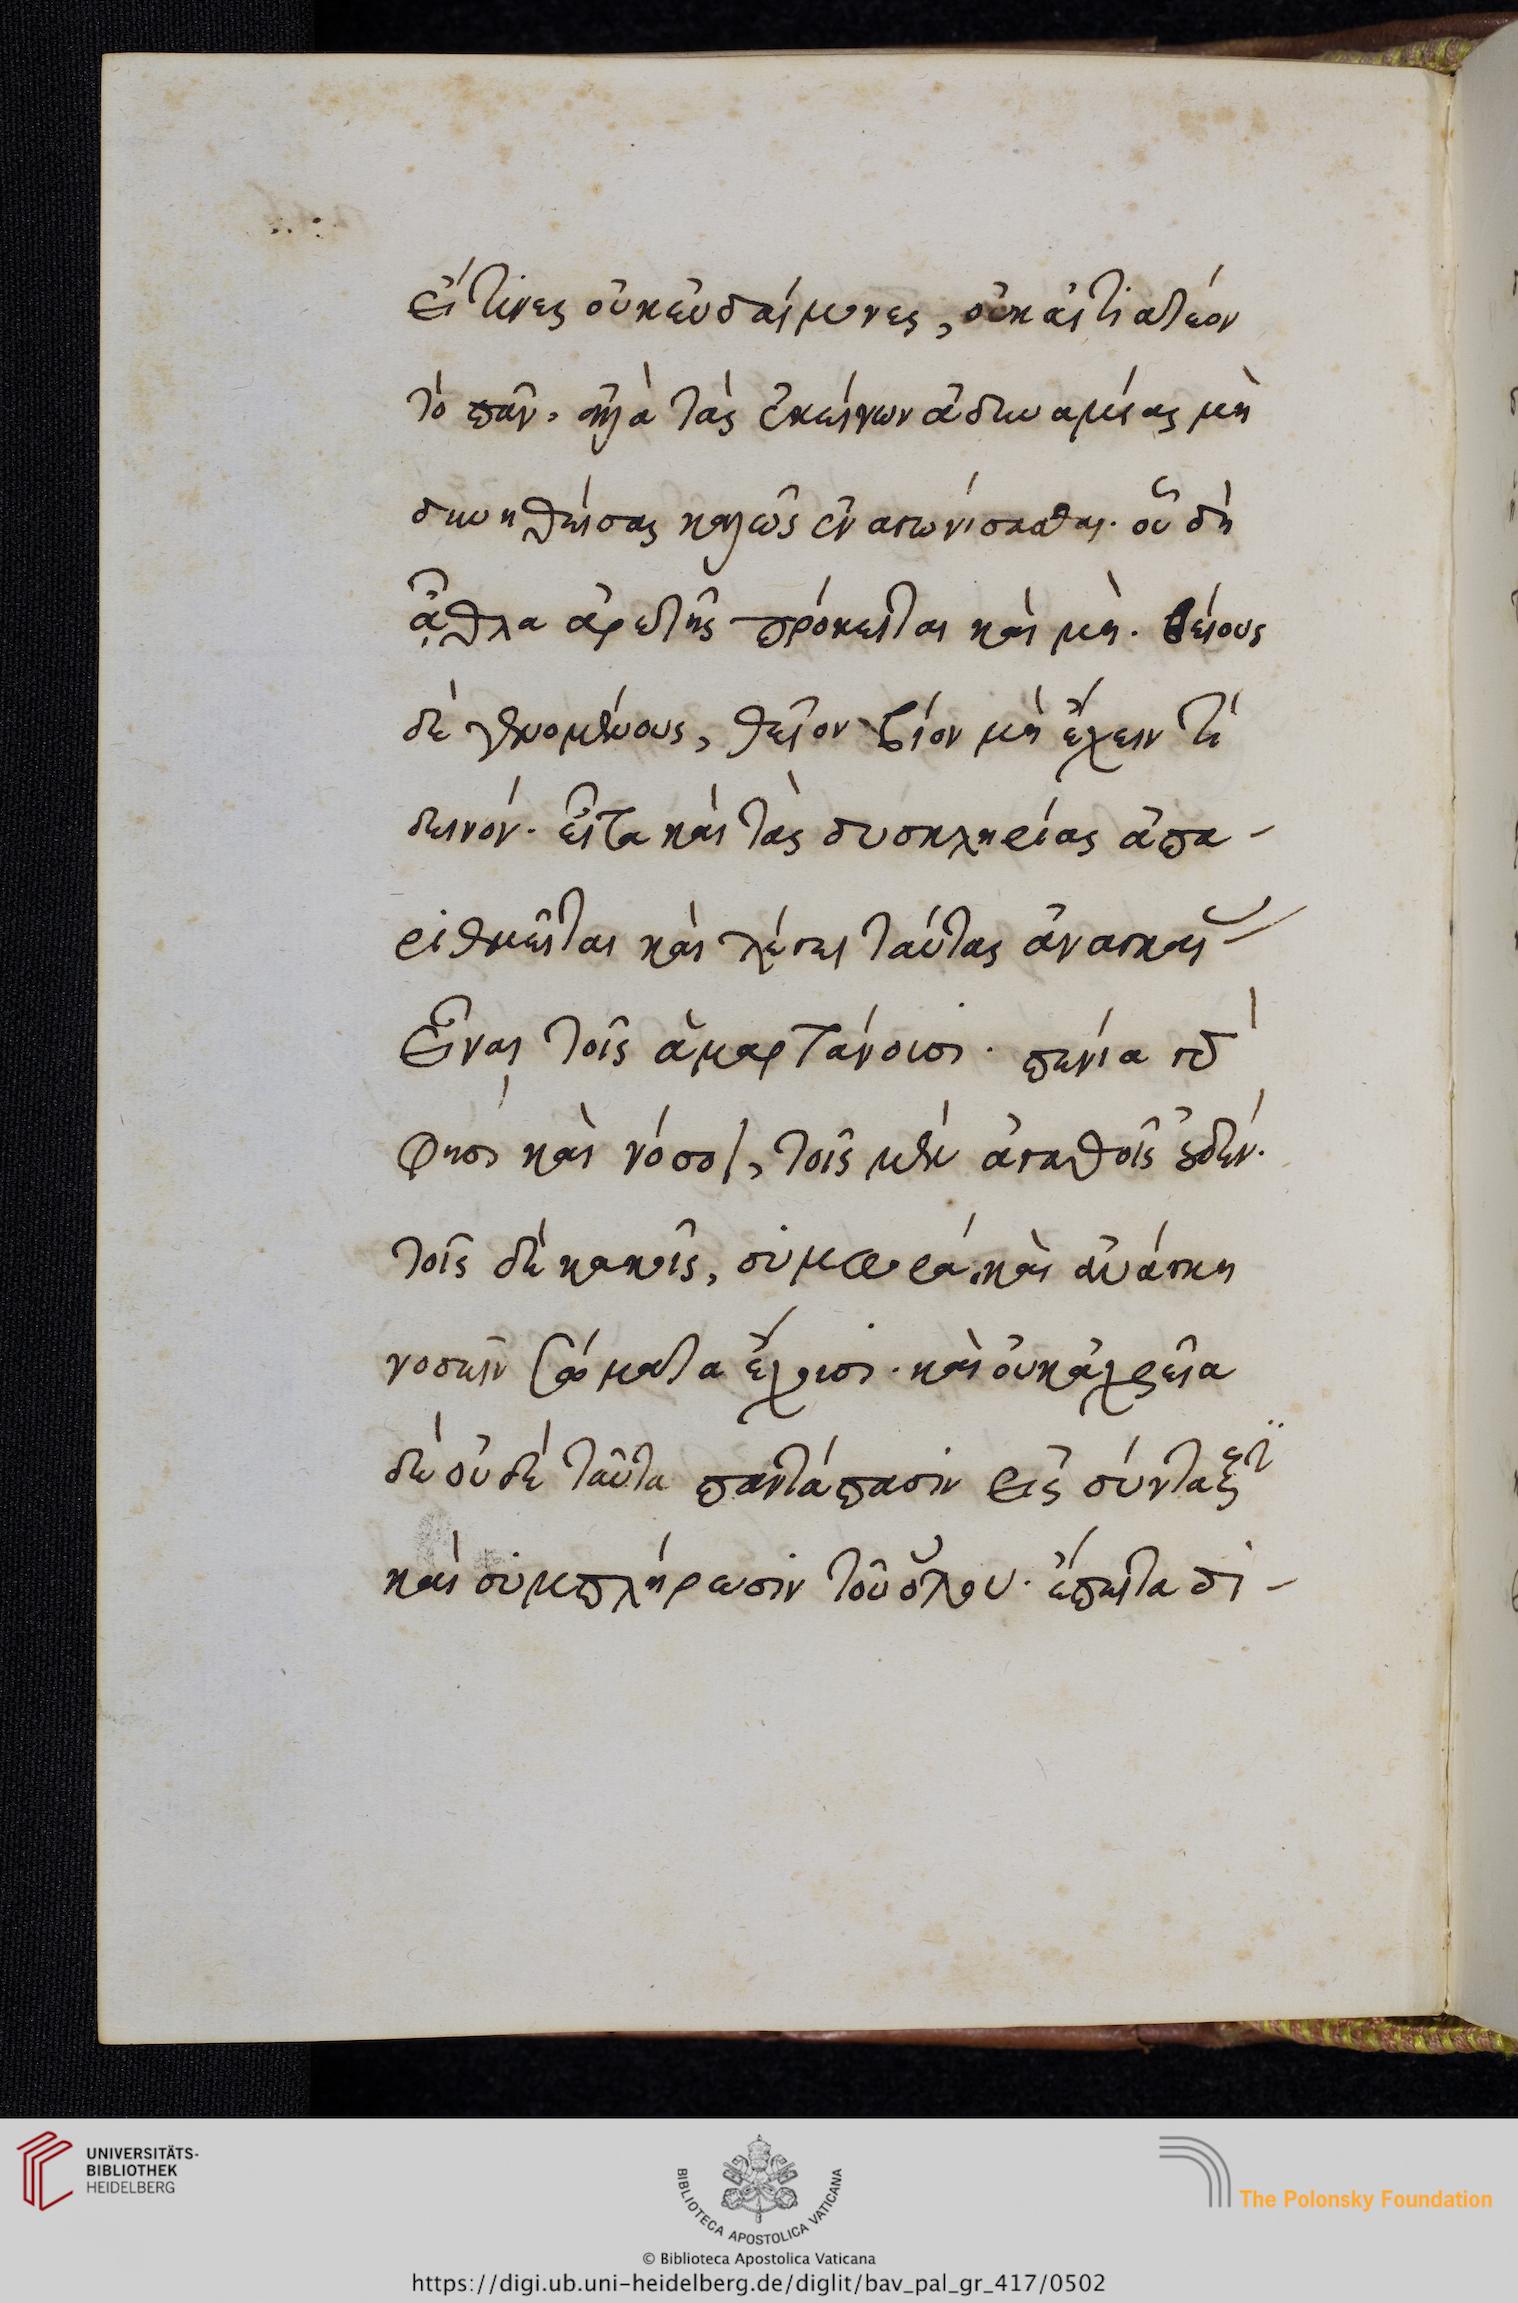 εἴ τινες οὐκ εὐδαίμονες, οὐκ αἰτιατέον
τὸ πᾶν. ἀλλὰ τὰς ἐκείνων ἀδυναμίας μὴ
δυνηθείσας καλῶς ἐναγωνίσασθαι. οὗ δὴ
ἆθλα ἀρετῆς πρόκειται καὶ μὴ. θείους
δὲ γενομένους, θεῖον βίον μὴ ἔχειν τί
δεινόν. εἶτα καὶ τὰς δυσκληρίας ἀπα-
ριθμεῖται καὶ λέγει ταύτας ἀναγκαί-
είναι τοῖς ἁμαρτάνουσι. πενία γὰρ
φησι καὶ νόσοι, τοῖς μὲν ἀγαθοῖς οὐδέν.
τοῖς δὲ κακοῖς, σύμφορά. καὶ ἀνάγκη
νοσεῖν σώματα ἔχουσι. καὶ οὐκ ἀχρεῖα
δὲ οὐδὲ ταῦτα παντάπασιν εἰς σύνταξιν ἐτὶ
καὶ συμπλήρωσιν τοῦ ὅλου. ἔπειτα δι-
UNIVERSITÄTS-
BIBLIOTHEK
HEIDELBERG
BIBLIOTECA APOSTOLICA VATICANA
The Polonsky Foundation
© Biblioteca Apostolica Vaticana
https://digi.ub.uni-heidelberg.de/diglit/bav_pal_gr_417/0502